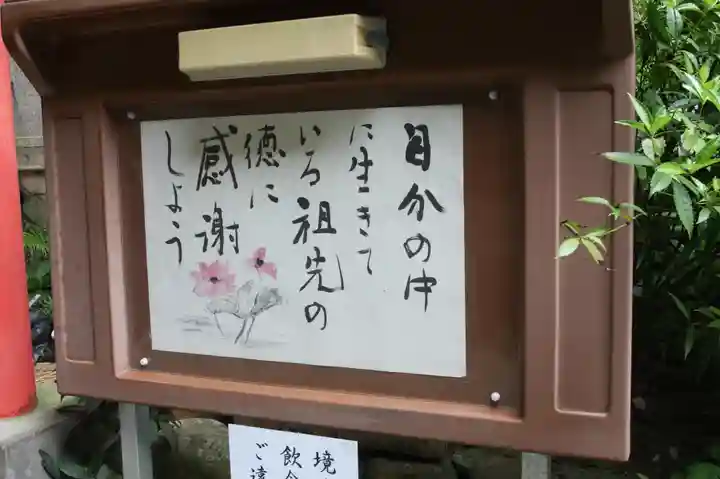 自分の中
に生きて
いる祖先の
徳に
感謝
しよう
境
飲食
ご遠